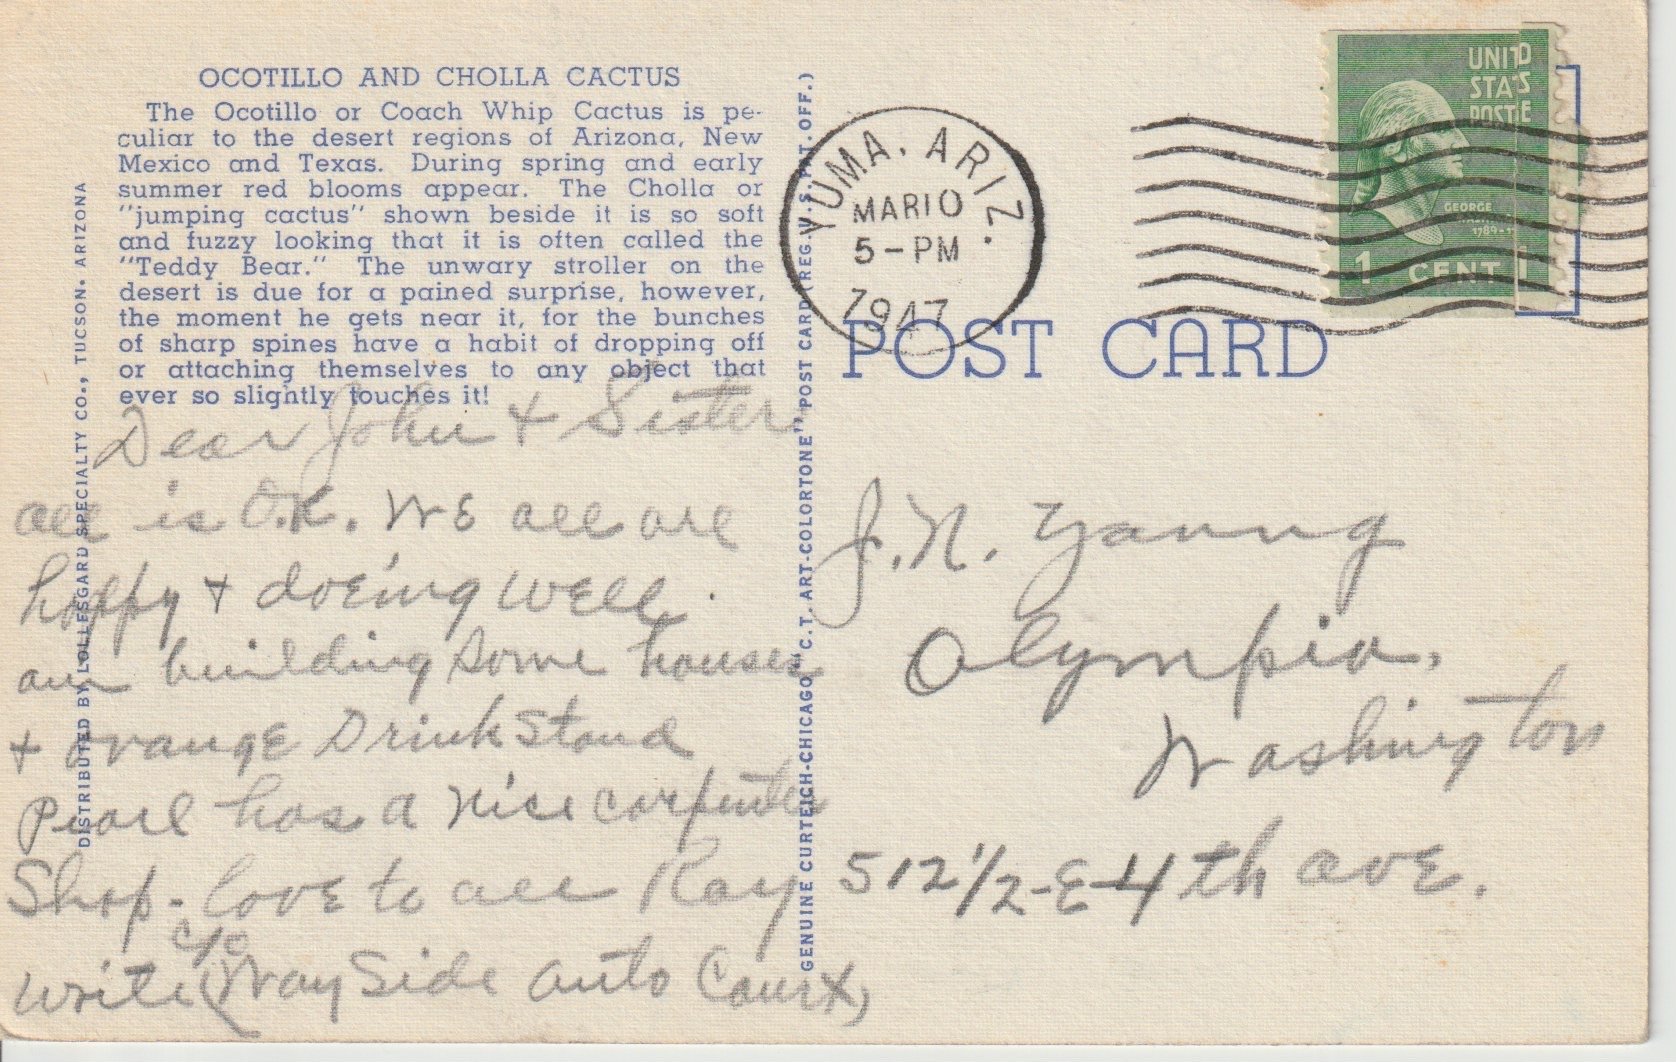 OCOTILLO AND CHOLLA CACTUS
The Ocotillo or Coach Whip Cactus is pe-
culiar to the desert regions of Arizona, New
Mexico and Texas. During spring and early
summer red blooms appear. The Cholla or
"jumping cactus" shown beside it is so soft
and fuzzy looking that it is often called the
"Teddy Bear." The unwary stroller on the
desert is due for a pained surprise, however,
the moment he gets near it, for the bunches
of sharp spines have a habit of dropping off
or attaching themselves to any object that
ever so slightly touches it!
DISTRIBUTED BY LOLLESGARD SPECIALTY CO., TUCSON, ARIZONA
Dear John + Sister
all is O.K. WE all are
happy + doEing WEll.
am building some houses
+ orangE Drink Stand
Pearl has a nice carpenter
Shop. lovE to all Ray
write c/o (Way Side auto Court)
GENUINE CURTEICH-CHICAGO "C.T. ART-COLORTONE" POST CARD (REG. U. S. PAT. OFF.)
YUMA, ARIZ.
MAR 10
5-PM
1947
UNIT D
STA S
POST E
GEORGE
1789-
1 CENT
POST CARD
J. N. Young
Olympia.
Washington
512 1/2-E-4th avE.